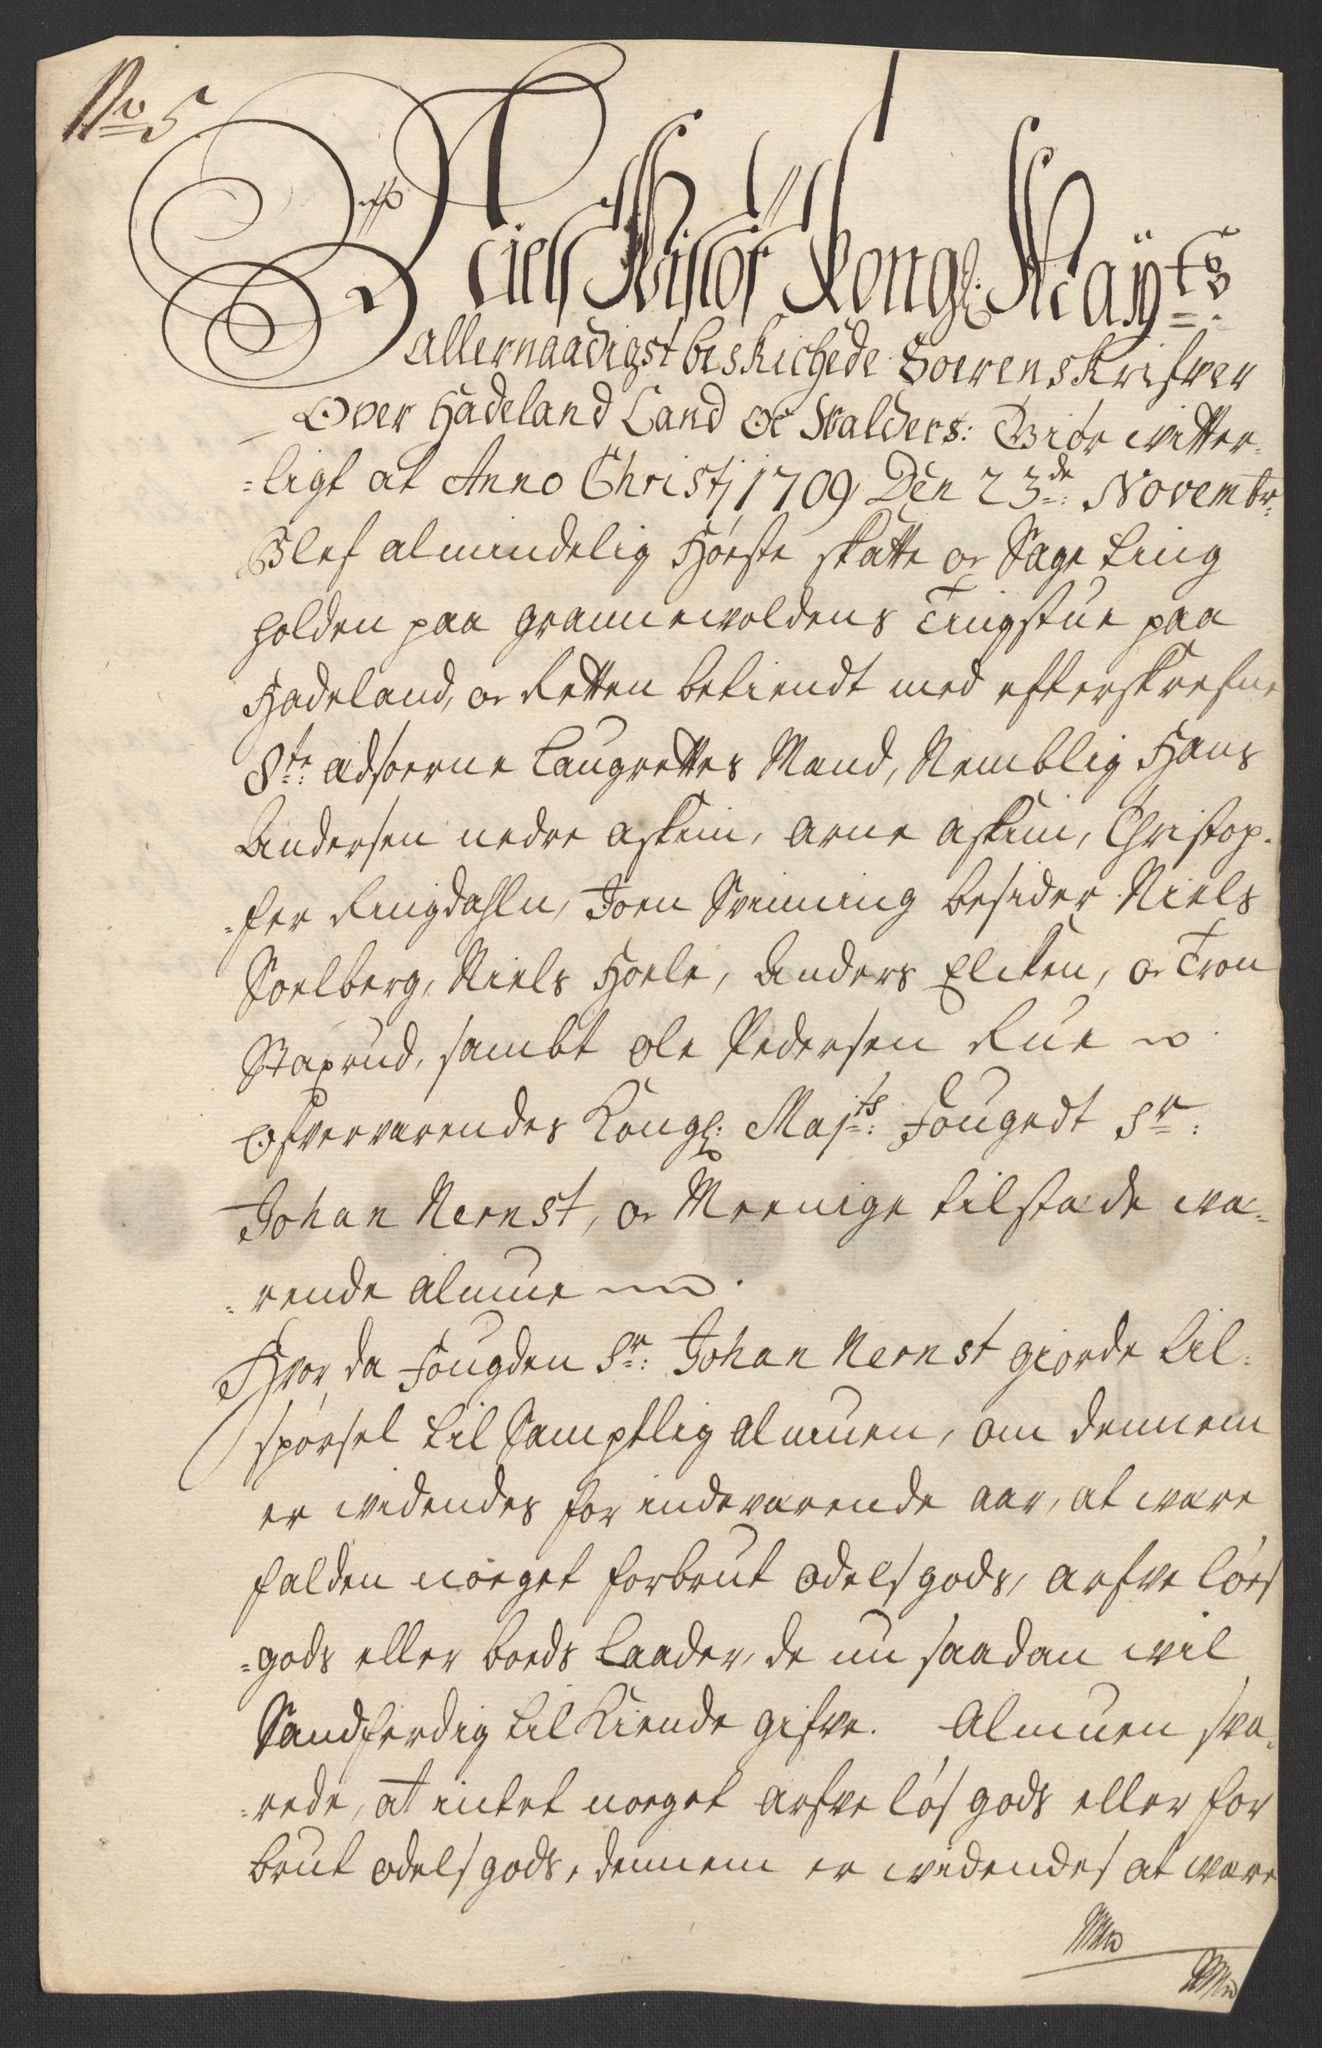 No 5
Niels Wisløf Kongl: Mayts:
allernaadigst beskichede Soerenskrifver
Over Hadeland Land oc Walders: Giør witter-
-ligt at Anno Christj 1709 Den 23de: Novembr:
Blef almindelig Høste skatte og Sage Ting
holden paa grannevoldens Tingstue paa
Hadeland, og Retten betiendt med efterskrefne
8te: adsoerne Laugrettes Mænd, Nemblig Hans
Andersen nedre askim, arne askim, Christop-
-fer Ringdahln, Joen Svinning besider Niels
Soelberg, Niels Hoele, Anders Elcken, og Tron
Staxrud, sambt ole Pedersen Rue
Ofververendes Kongl: Majts: Fougedt Sr:
Johan Nernst, og Meenige tilstæde wæ-
-rende almue
Hvor da Fougden Sr: Johan Nernst giorde til-
spørsel til Samptlig almuen, om dennem
er widendes for indeværende aar, at være
falden noeget forbrut odels gods, arfve løes
-gods eller boeds Laader, de nu saadan wil
Sandferdig til Kiende gifve. Almuen sva-
-rede, at intet noeget arfve løs gods eller for
brut odels gods, dennem er widendes at være